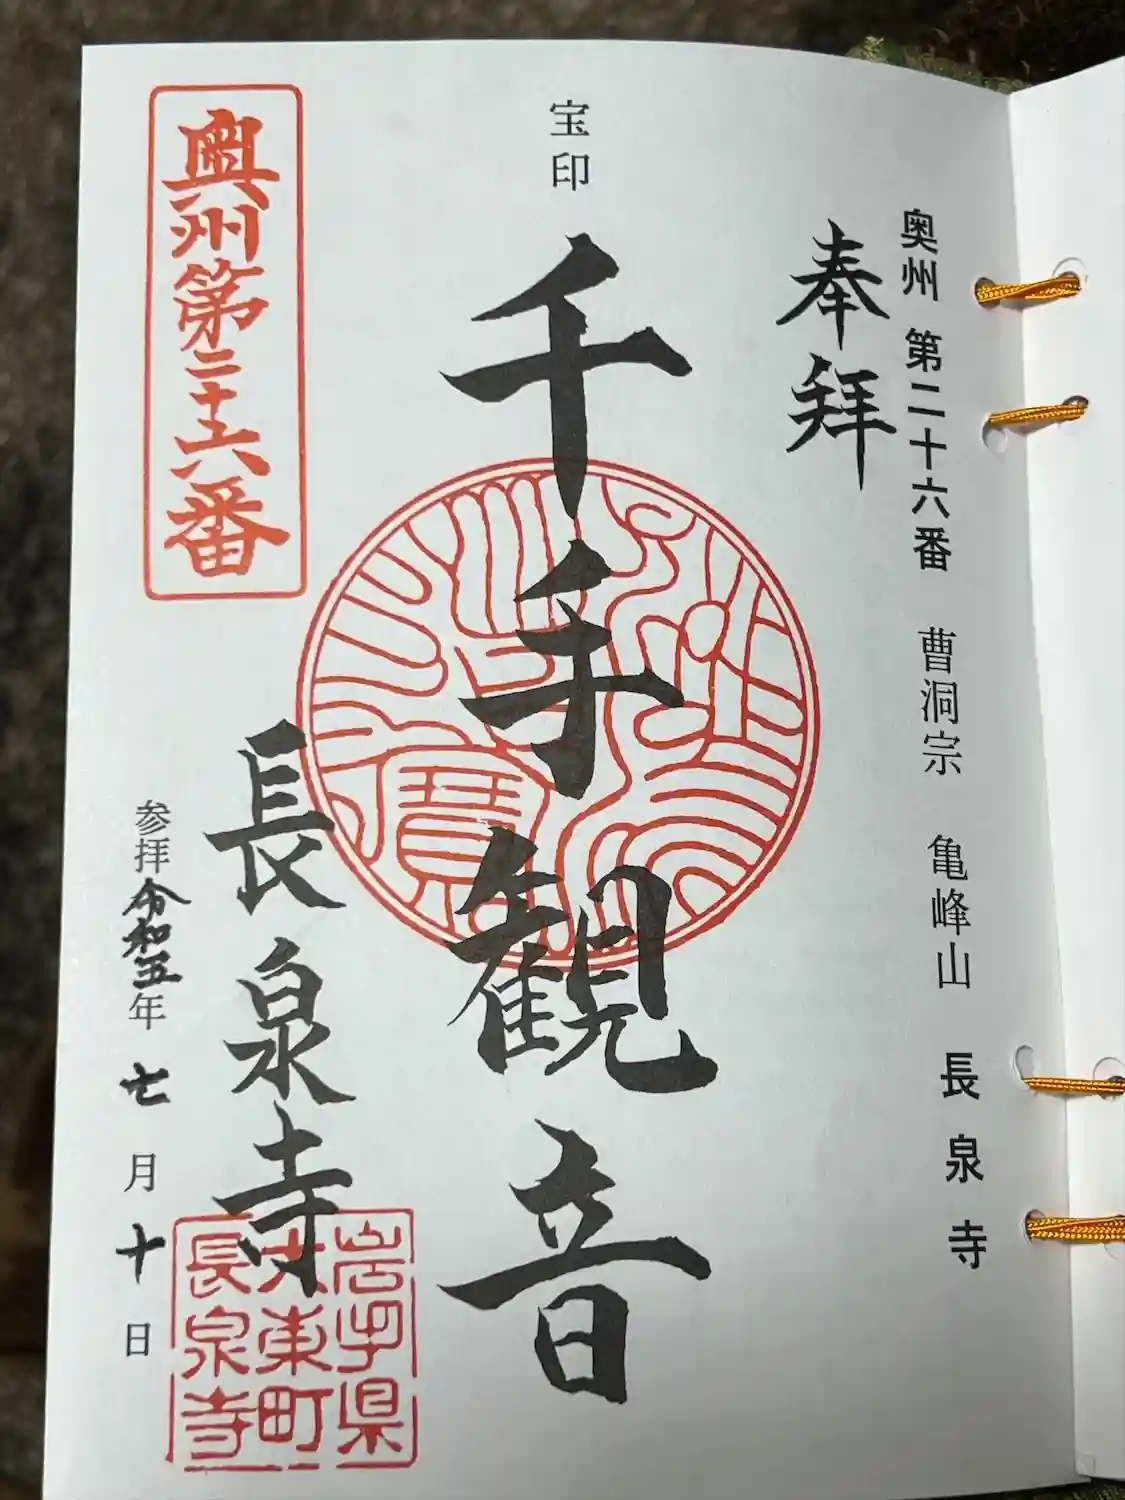 奥州 第二十六番 曹洞宗 亀峰山 長泉寺
奉拝
宝印
千手観音
長泉寺
岩手県
大東町
長泉寺
奥州第二十六番
参拝令和五年 七月十日